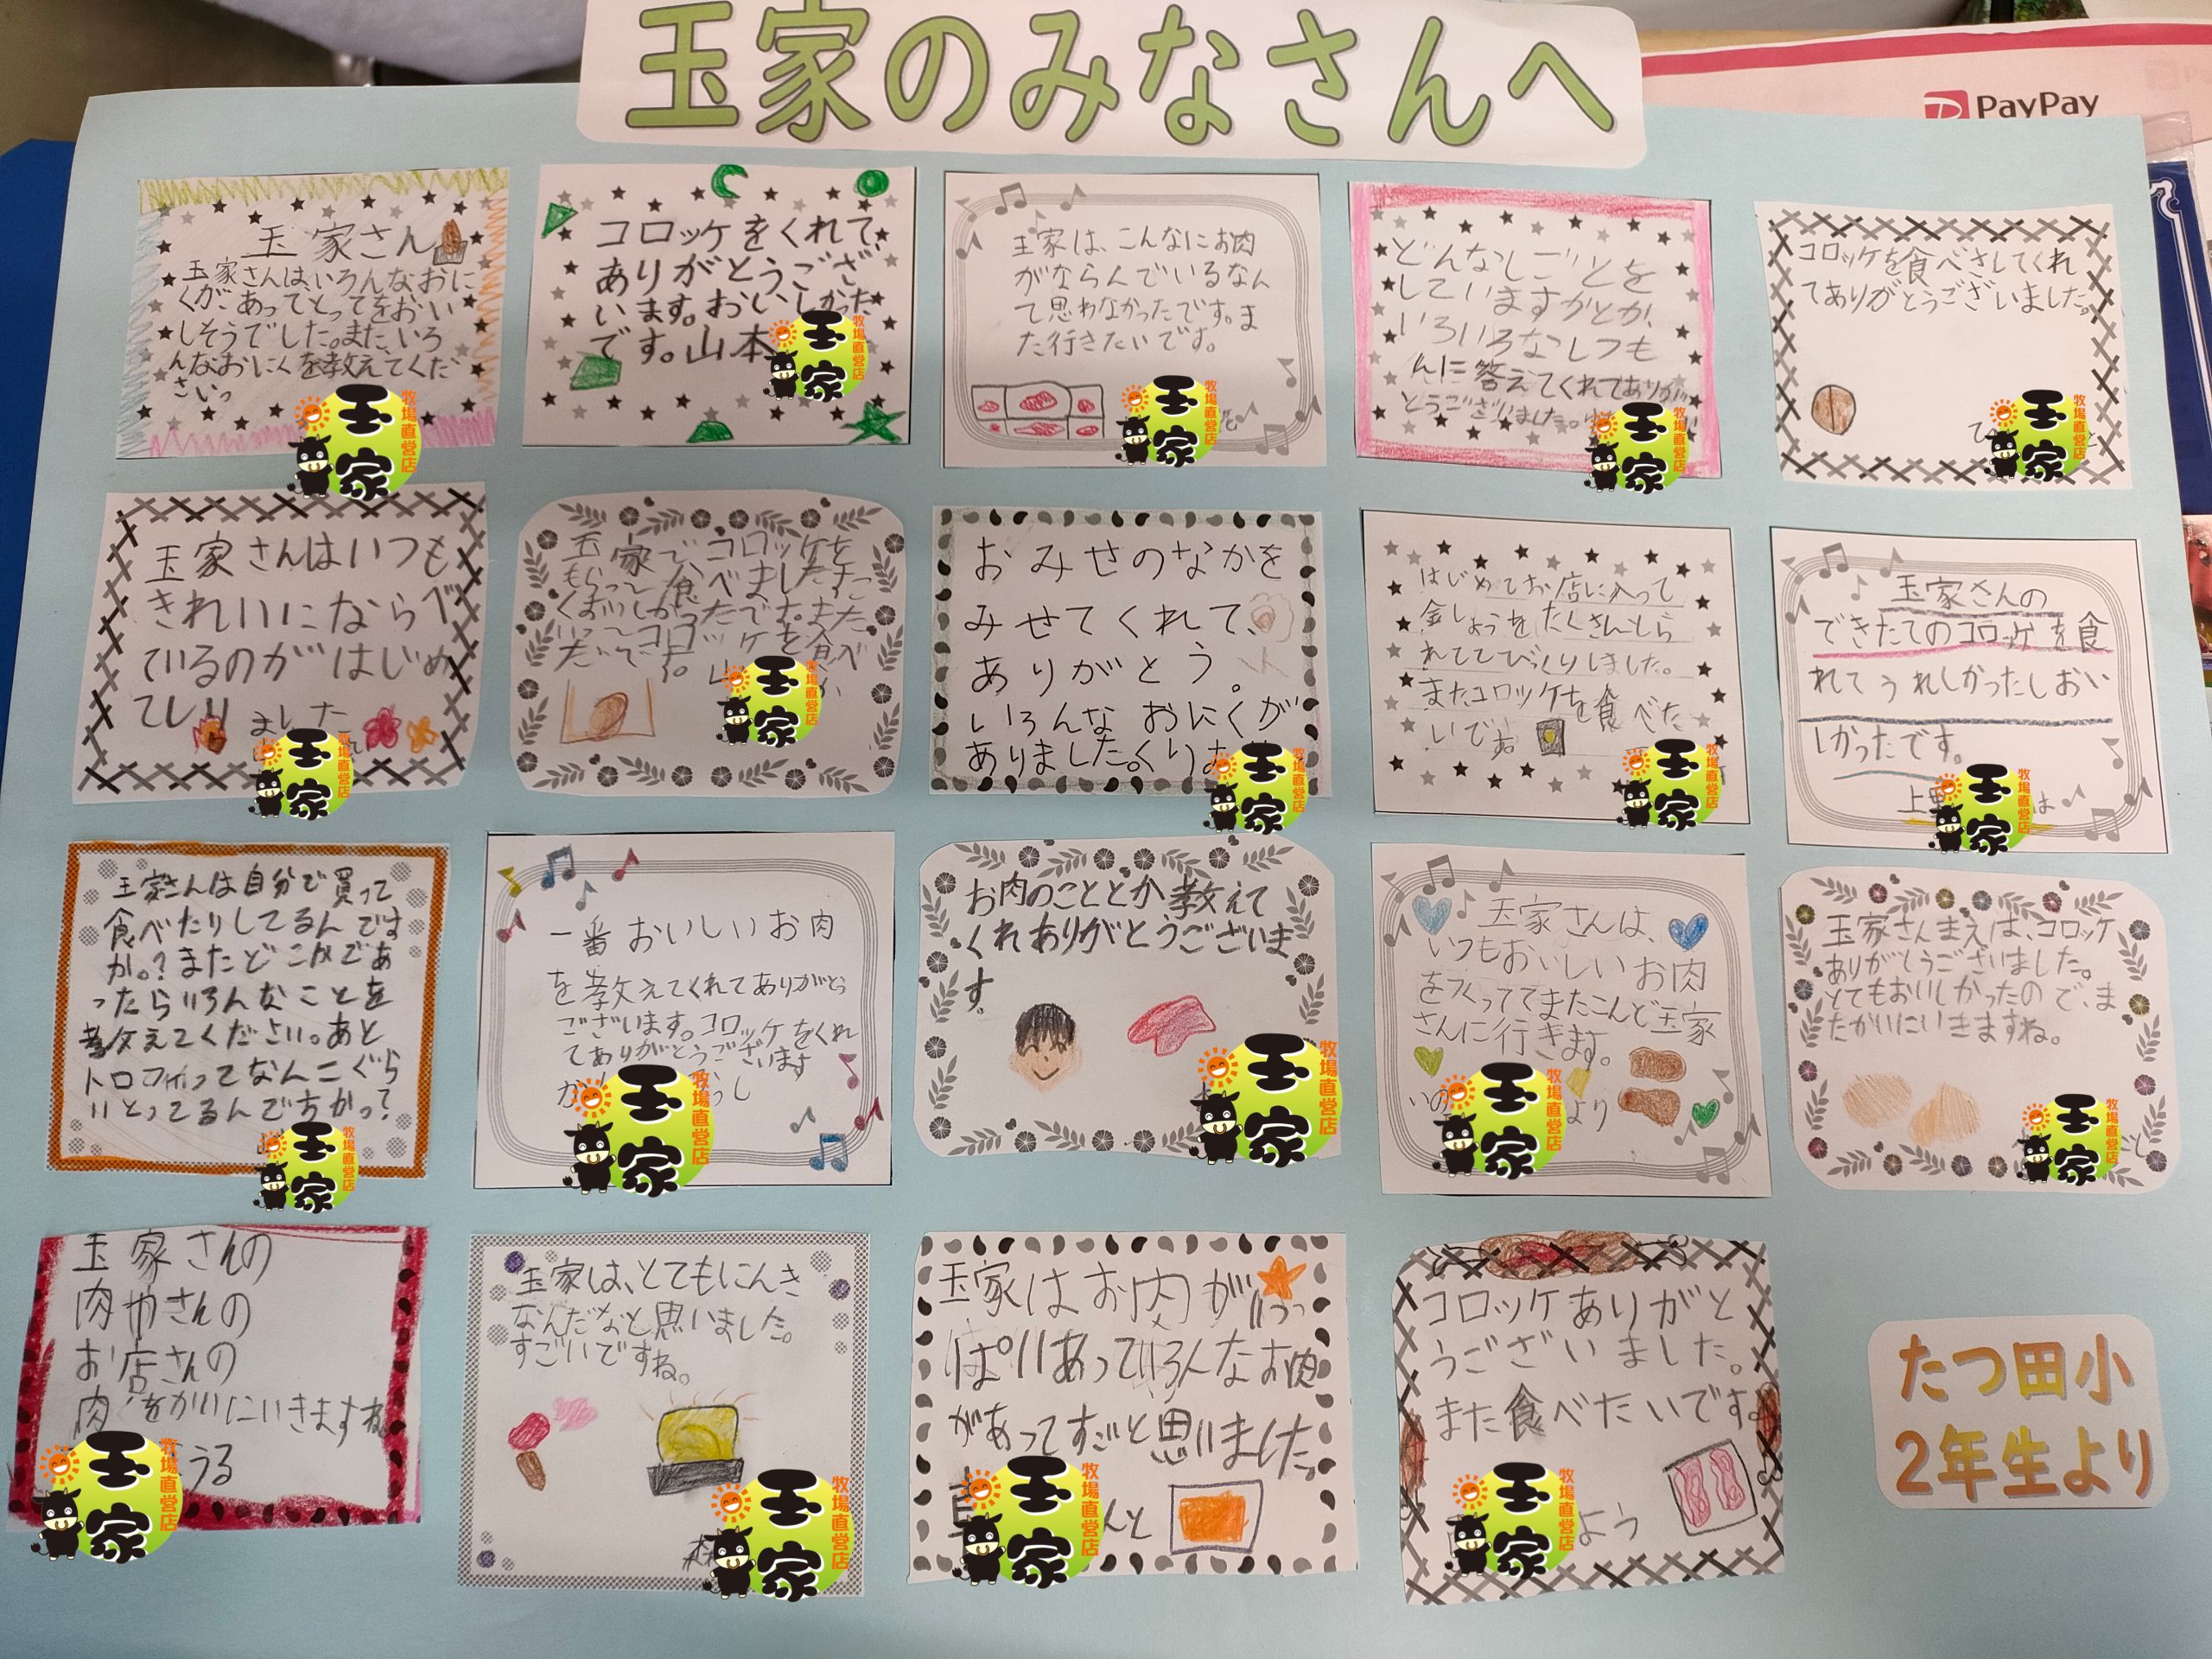 玉家のみなさんへ
PayPay
玉家さん
玉家さんはいろんなおに
くがあってとってをおい
しそうでした。また、いろ
んなおにくを教えてくだ
さいっ
コロッケをくれて、
ありがとうござ
います。おいしかった
です。山本
玉家は、こんなにお肉
がならんでいるなん
て思わなかったです。ま
た行きたいです。
どんなしごとを
していますかとか、
いろいろなしつも
んに答えてくれてありが
とうございました。
コロッケを食べさしてくれ
てありがとうございました。
玉家さんはいつも
きれいにならべ
ているのがはじめ
てしり
ました
玉家でコロッケを
もらって食べました
いってコロッケを食べ
おみせのなかを
みせてくれて、
ありがとう。
いろんな おにくが
ありました。くり
はじめてお店に入って
金しょうをたくさんとら
れててびっくりしました。
またコロッケを食べた
いです。
玉家さんの
できたてのコロッケを食
れてうれしかったしおい
しかったです。
上
は
玉家さんは自分で買って
食べたりしてるんです
か。?またどこかであ
ったらいろんなことを
教えてください。あと
トロフィーってなんこぐら
いとってるんですかって?
一番おいしいお肉
を教えてくれてありがとう
ございます。コロッケをくれ
てありがとうございます
か
し
お肉のこととか教えて
くれありがとうございま
す。
玉家さんは、
いつもおいしいお肉
をつくっててまたこんど玉家
さんに行きます。
いの
より
玉家さんまえは、コロッケ
ありがとうございました。
とてもおいしかったので、ま
たかいにいきますね。
と
玉家さんの
肉やさんの
お店さんの
肉をかいにいきますね
うる
玉家は、とてもにんき
なんだなと思いました。
すごいですね。
森
玉家はお肉がいっ
ぱいあっていろんなお肉
があってすごと思いました。
んと
コロッケありがと
うございました。
また食べたいです。
よう
たつ田小
2年生より
玉家
牧場直営店
玉家
牧場直営店
玉家
牧場直営店
玉家
牧場直営店
玉家
牧場直営店
玉家
牧場直営店
玉家
牧場直営店
玉家
牧場直営店
玉家
牧場直営店
玉家
牧場直営店
玉家
牧場直営店
玉家
牧場直営店
玉家
牧場直営店
玉家
牧場直営店
玉家
牧場直営店
玉家
牧場直営店
玉家
牧場直営店
玉家
牧場直営店
玉家
牧場直営店